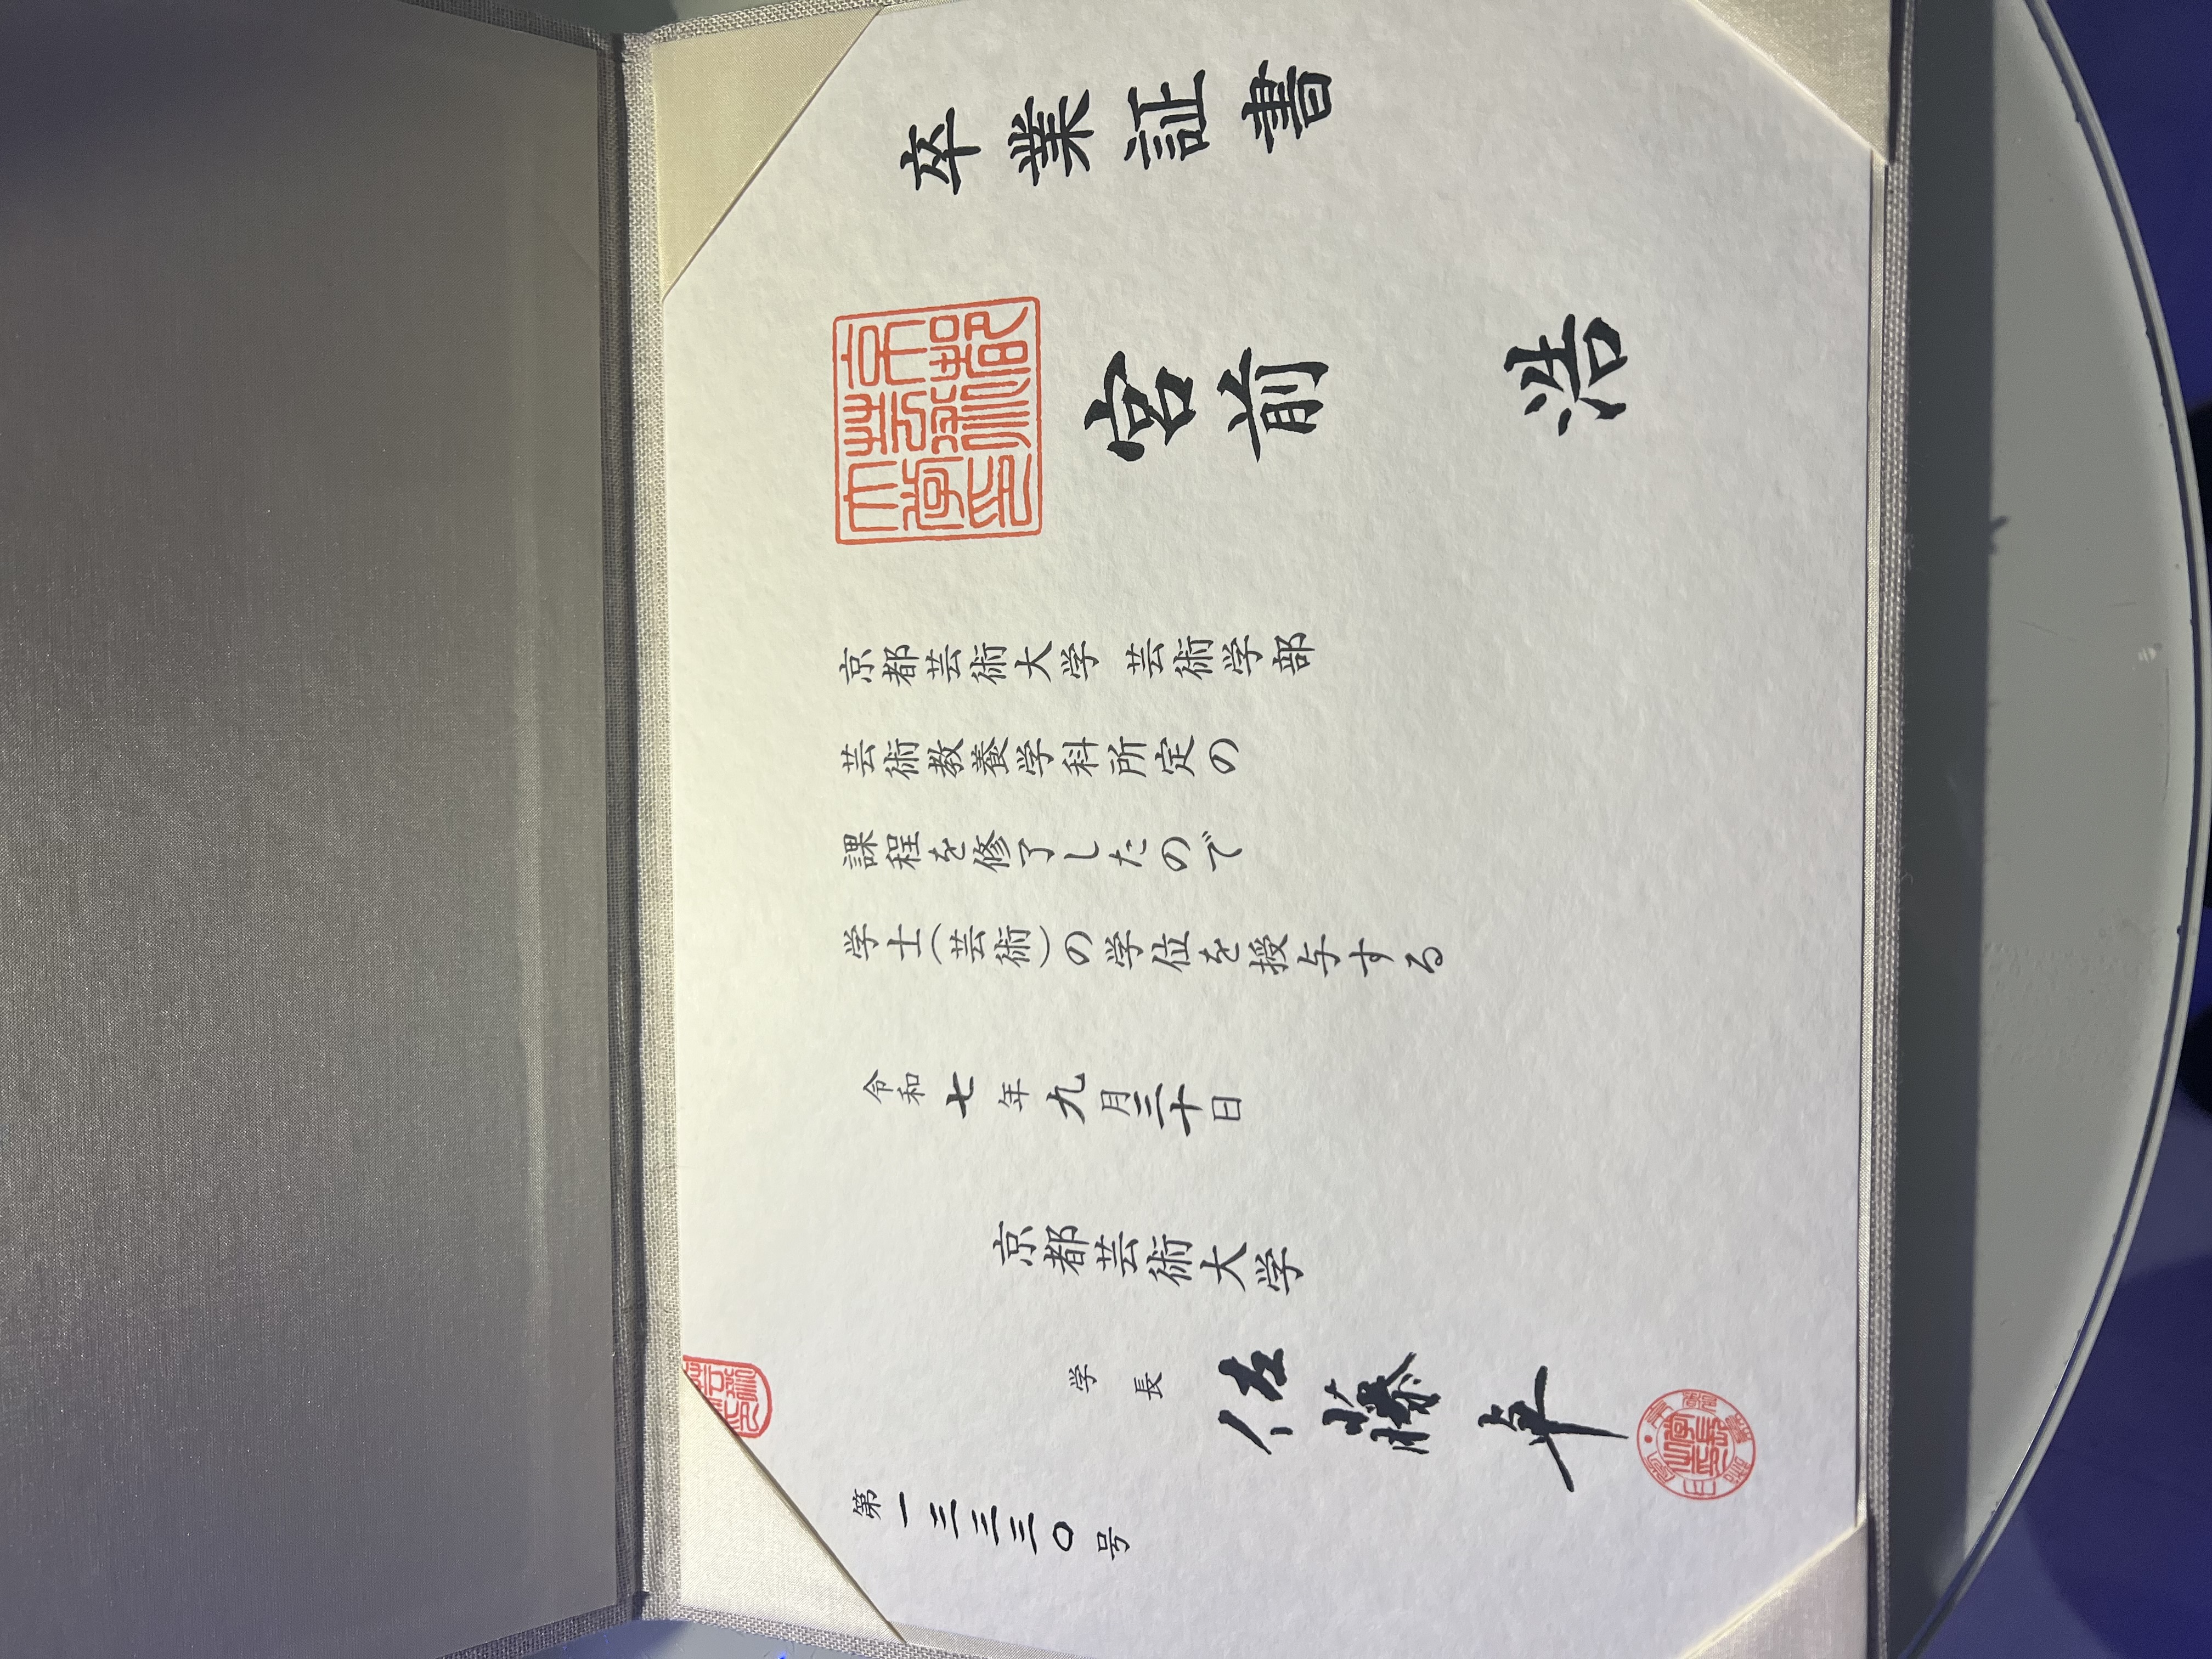 卒業証書
宮前 浩
京都芸術大学 芸術学部
芸術教養学科所定の
課程を修了したので
学士(芸術)の学位を授与する
令和七年九月三十日
京都芸術大学
学長 佐藤卓
第一三三三〇号